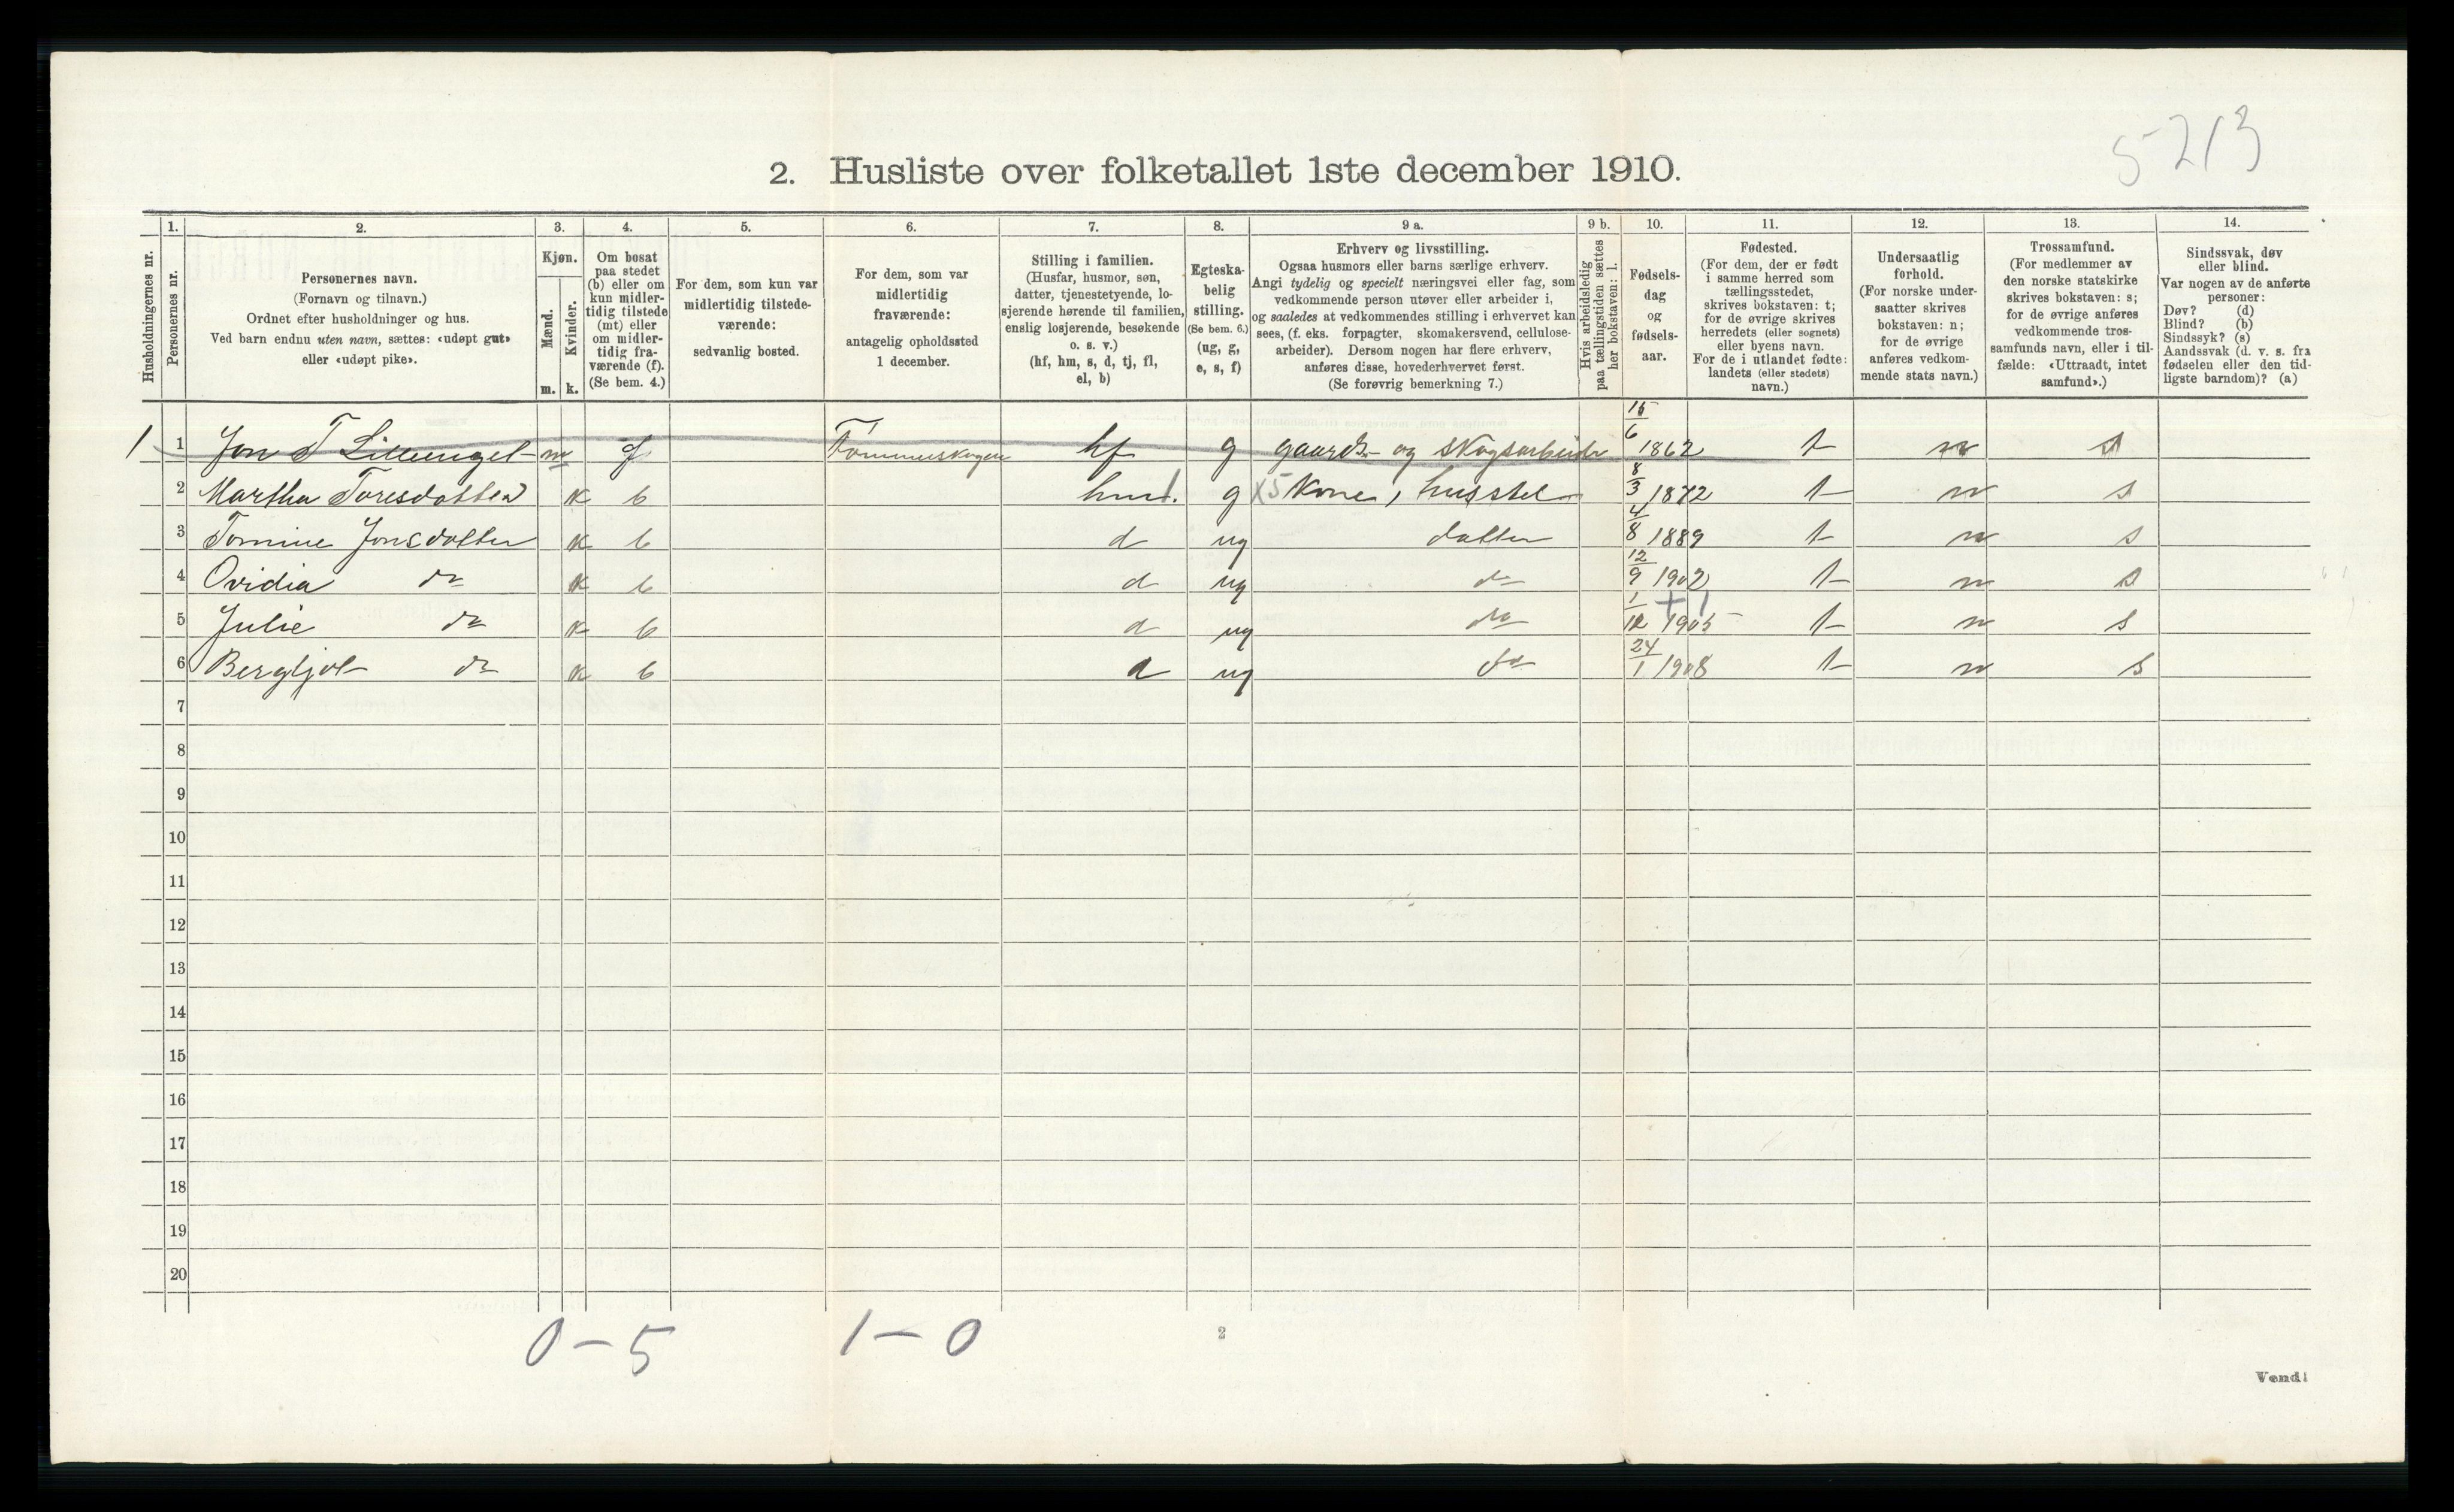 5213
2. Husliste over folketallet 1ste december 1910.
Husholdningernes nr.
1. Personernes nr.
2. Personernes navn.
(Fornavn og tilnavn.)
Ordnet efter husholdninger og hus.
Ved barn endnu uten navn, sættes: «udøpt gut»
eller «udøpt pike».
3. Kjøn.
Mænd. m.
Kvinder. k.
4. Om bosat
paa stedet
(b) eller om
kun midler-
tidig tilstede
(mt) eller
om midler-
tidig fra-
værende (f).
(Se bem. 4.)
5. For dem, som kun var
midlertidig tilstede-
værende:
sedvanlig bosted.
6. For dem, som var
midlertidig
fraværende:
antagelig opholdssted
1 december.
7. Stilling i familien.
(Husfar, husmor, søn,
datter, tjenestetyende, lo-
sjerende hørende til familien,
enslig losjerende, besøkende
o. s. v.)
(hf, hm, s, d, tj, fl,
el, b)
8. Egteska-
belig
stilling.
(Se bem. 6.)
(ug, g,
e, s, f)
9 a. Erhverv og livsstilling.
Ogsaa husmors eller barns særlige erhverv.
Angi tydelig og specielt næringsvei eller fag, som
vedkommende person utøver eller arbeider i,
og saaledes at vedkommendes stilling i erhvervet kan
sees, (f. eks. forpagter, skomakersvend, cellulose-
arbeider). Dersom nogen har flere erhverv,
anføres disse, hovederhvervet først.
(Se forøvrig bemerkning 7.)
9 b. Hvis arbeidsledig
paa tællingstiden sættes
her bokstaven: l.
10. Fødsels-
dag
og
fødsels-
aar.
11. Fødested.
(For dem, der er født
i samme herred som
tællingsstedet,
skrives bokstaven: t;
for de øvrige skrives
herredets (eller sognets)
eller byens navn.
For de i utlandet fødte:
landets (eller stedets)
navn.)
12. Undersaatlig
forhold.
(For norske under-
saatter skrives
bokstaven: n;
for de øvrige
anføres vedkom-
mende stats navn.)
13. Trossamfund.
(For medlemmer av
den norske statskirke
skrives bokstaven: s;
for de øvrige anføres
vedkommende tros-
samfunds navn, eller i til-
fælde: «Uttraadt, intet
samfund».)
14. Sindssvak, døv
eller blind.
Var nogen av de anførte
personer:
Døv? (d)
Blind? (b)
Sindssyk? (s)
Aandssvak (d. v. s. fra
fødselen eller den tid-
ligste barndom)? (a)
1 1 Jon T Lilleengel m f hf g gaards- og skogsarbeider 15/6 1862 t n s
2 Martha Toresdatter k b hm. g kone, husstel 8/3 1872 t n s
3 Tomine Jonsdatter k b d ug datter 4/8 1889 t n s
4 Ovidia do k b d ug do 12/9 1902 t n s
5 Julie do k b d ug do 1/12 1905 t n s
6 Bergljot do k b d ug do 24/1 1908 t n s
7
8
9
10
11
12
13
14
15
16
17
18
19
20
0-5 1-0
2
Vend!